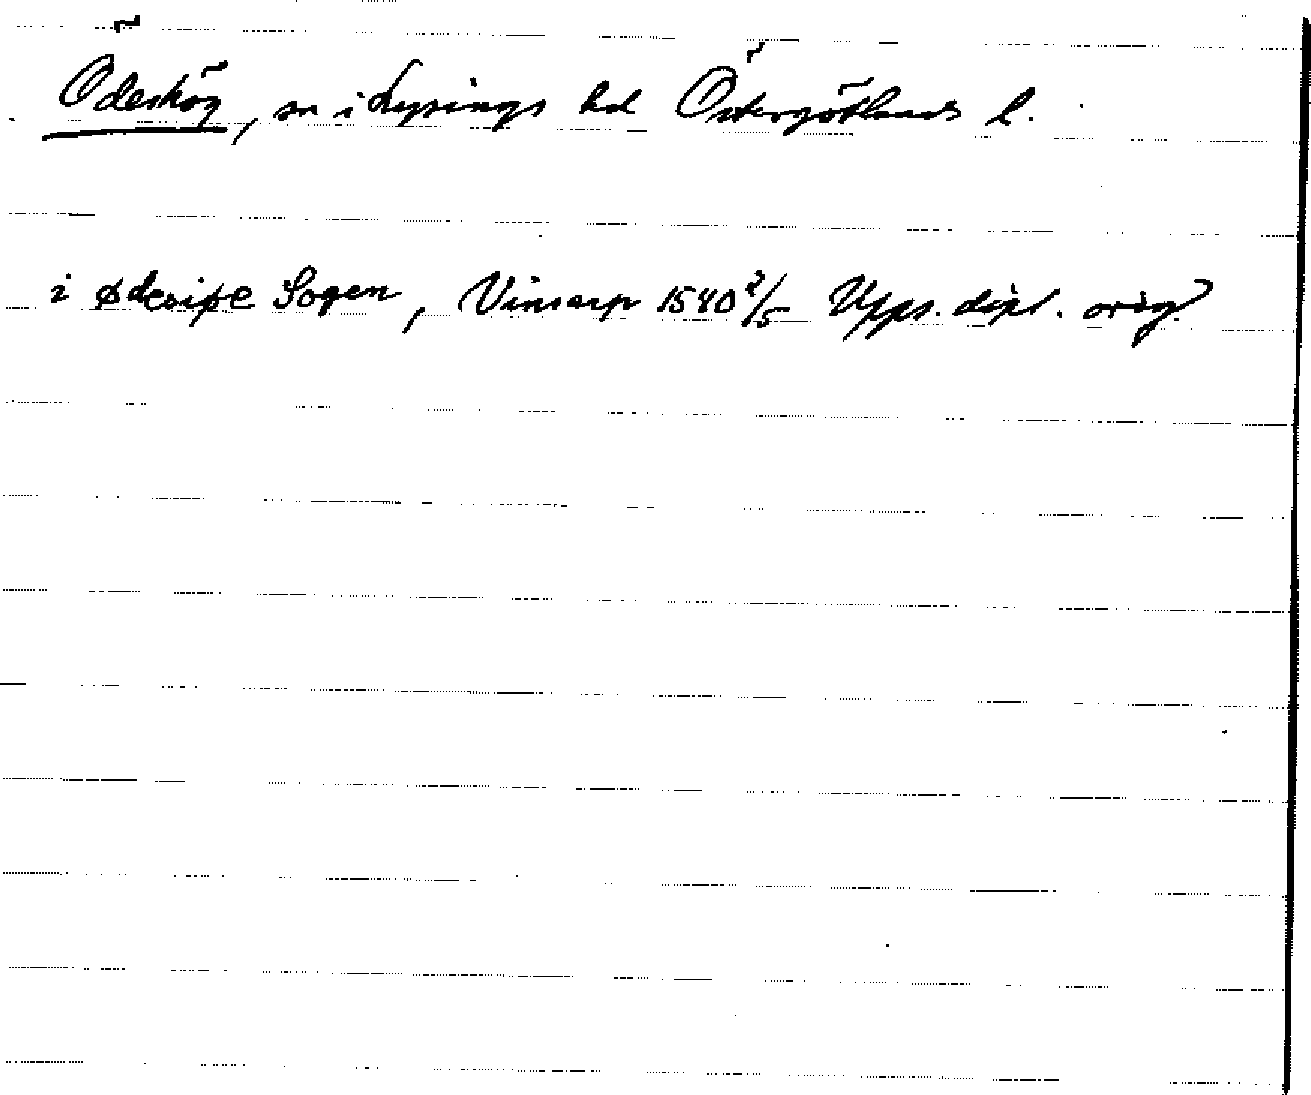 Ödeshög, sn i Lysings hd Östergötlands l.
i ødesipe Sogen, Vinsarp 1540 2/5 Upps. dipl. orig.